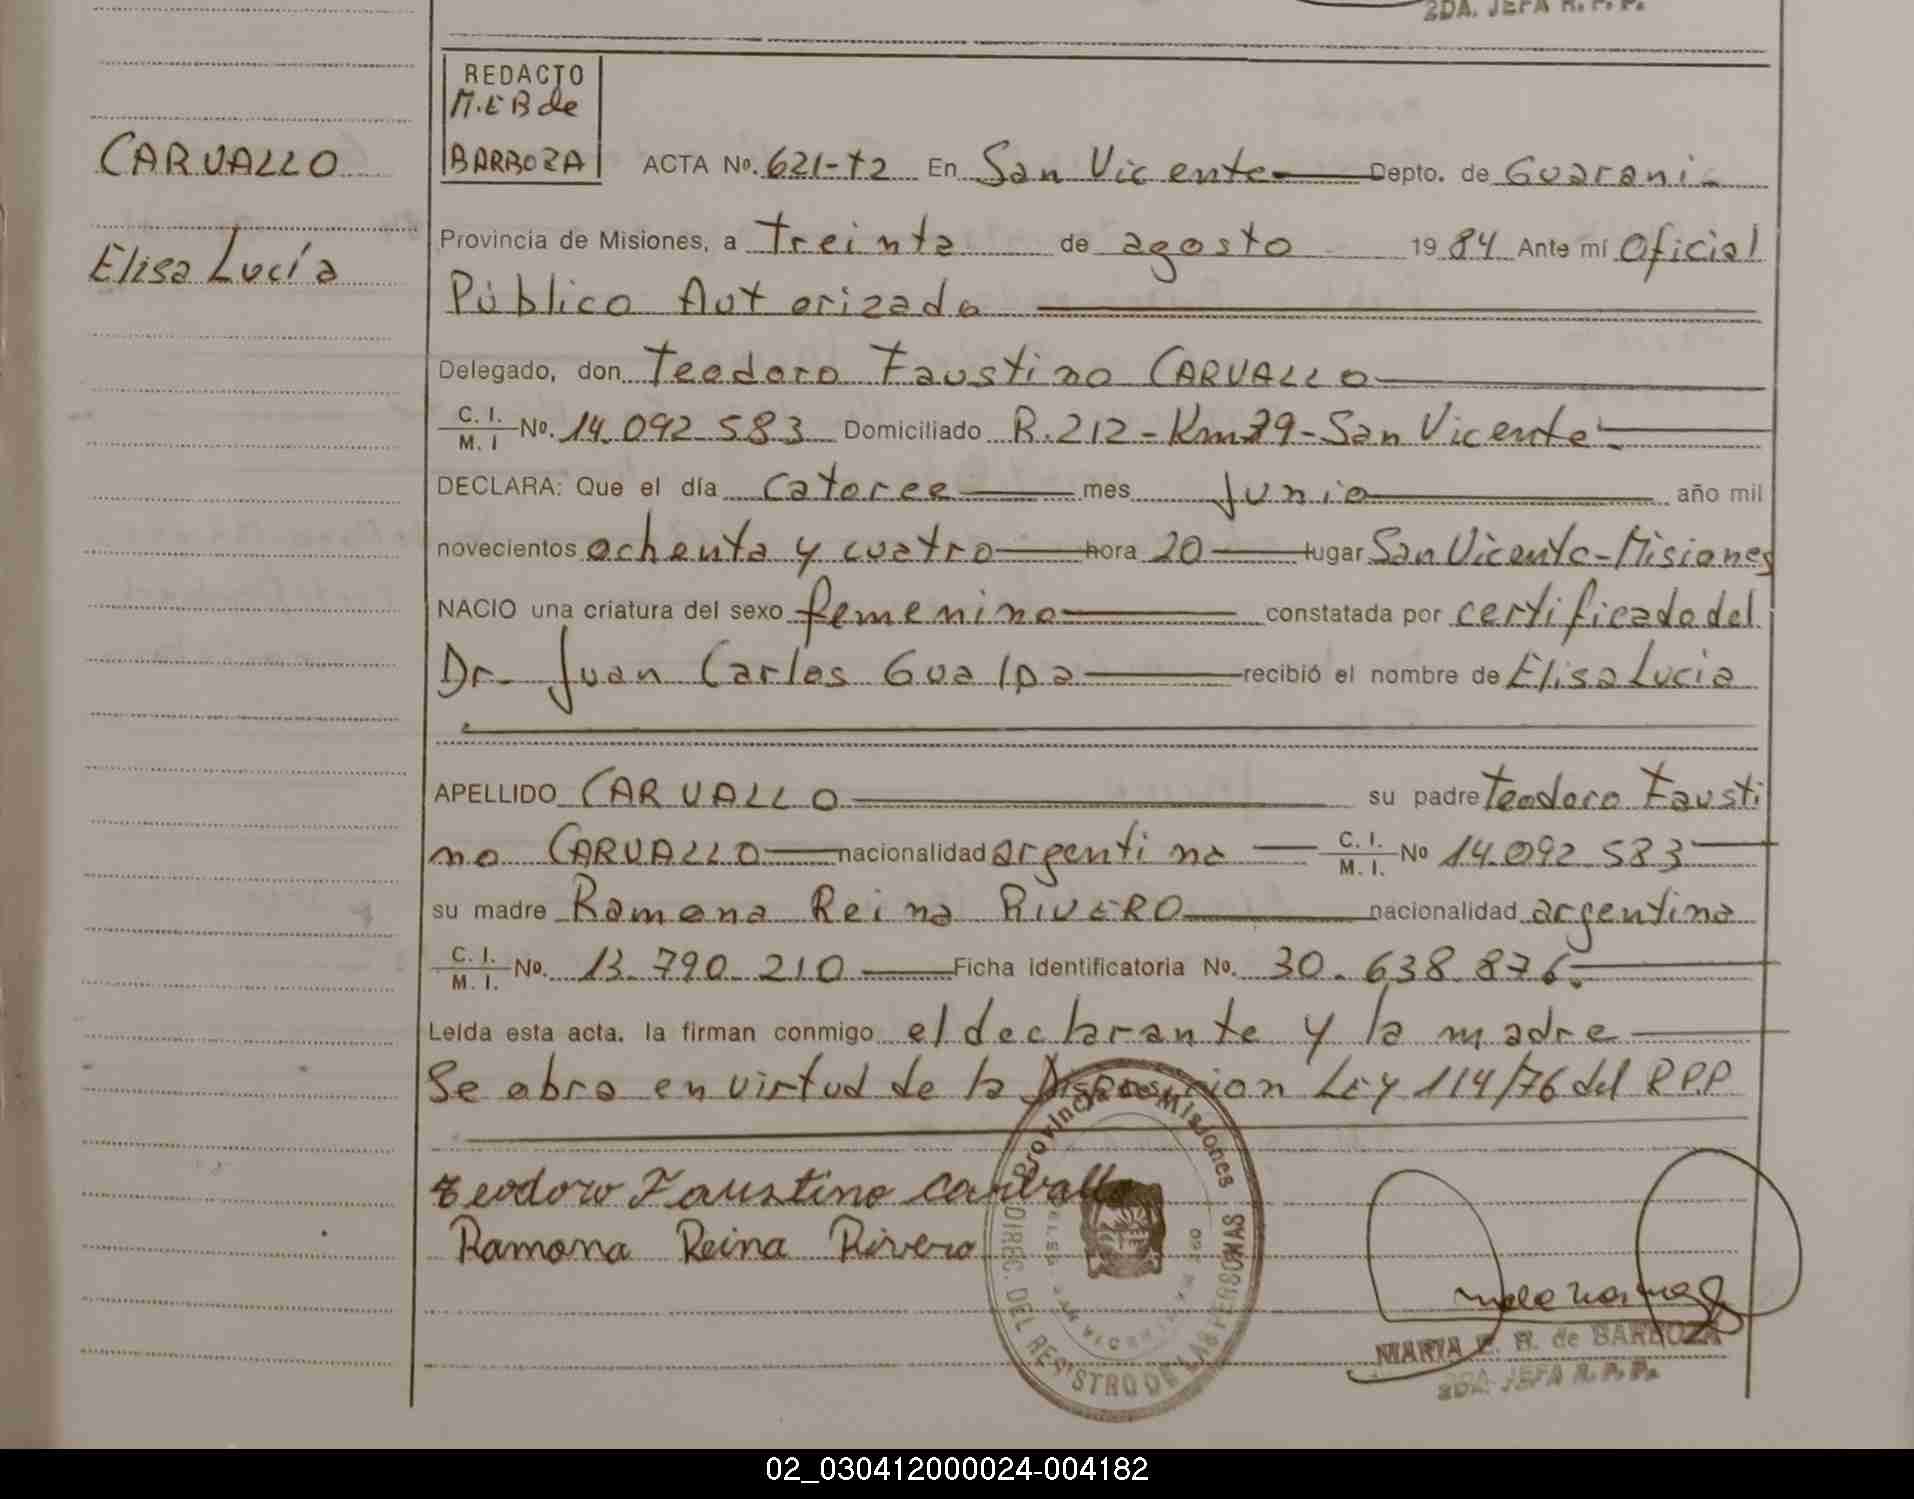 2DA. JEFA R.P.P.
REDACTO
M.E B de
BARBOZA
CARVALLO
Elisa Lucía
ACTA No. 621-t2 En San Vicente Depto. de Guaraní
Provincia de Misiones, a treinta de agosto 1984 Ante mí Oficial
Público Autorizado
Delegado, don Teodoro Faustino CARVALLO
C. I. / M. I No. 14.092.583 Domiciliado R.212-Km 79-San Vicente
DECLARA: Que el día catorce mes junio año mil
novecientos ochenta y cuatro hora 20 lugar San Vicente-Misiones
NACIO una criatura del sexo femenino constatada por certificado del
Dr. Juan Carlos Gualpa recibió el nombre de Elisa Lucia
APELLIDO CARVALLO su padre Teodoro Fausti
no CARVALLO nacionalidad argentina C. I. / M. I. No 14.092.583
su madre Ramona Reina RIVERO nacionalidad argentina
C. I. / M. I. No. 13.790.210 Ficha identificatoria No. 30.638.876.
Leída esta acta, la firman conmigo el declarante y la madre
Se abro en virtud de la Disposicion Ley 114/76 del R.P.P
Teodoro Faustino Carvallo
Ramona Reina Rivero
Provincia de Misiones
DIREC. DEL REGISTRO DE LAS PERSONAS
MARIA E. B. de BARBOZA
2DA. JEFA R.P.P.
02_030412000024-004182